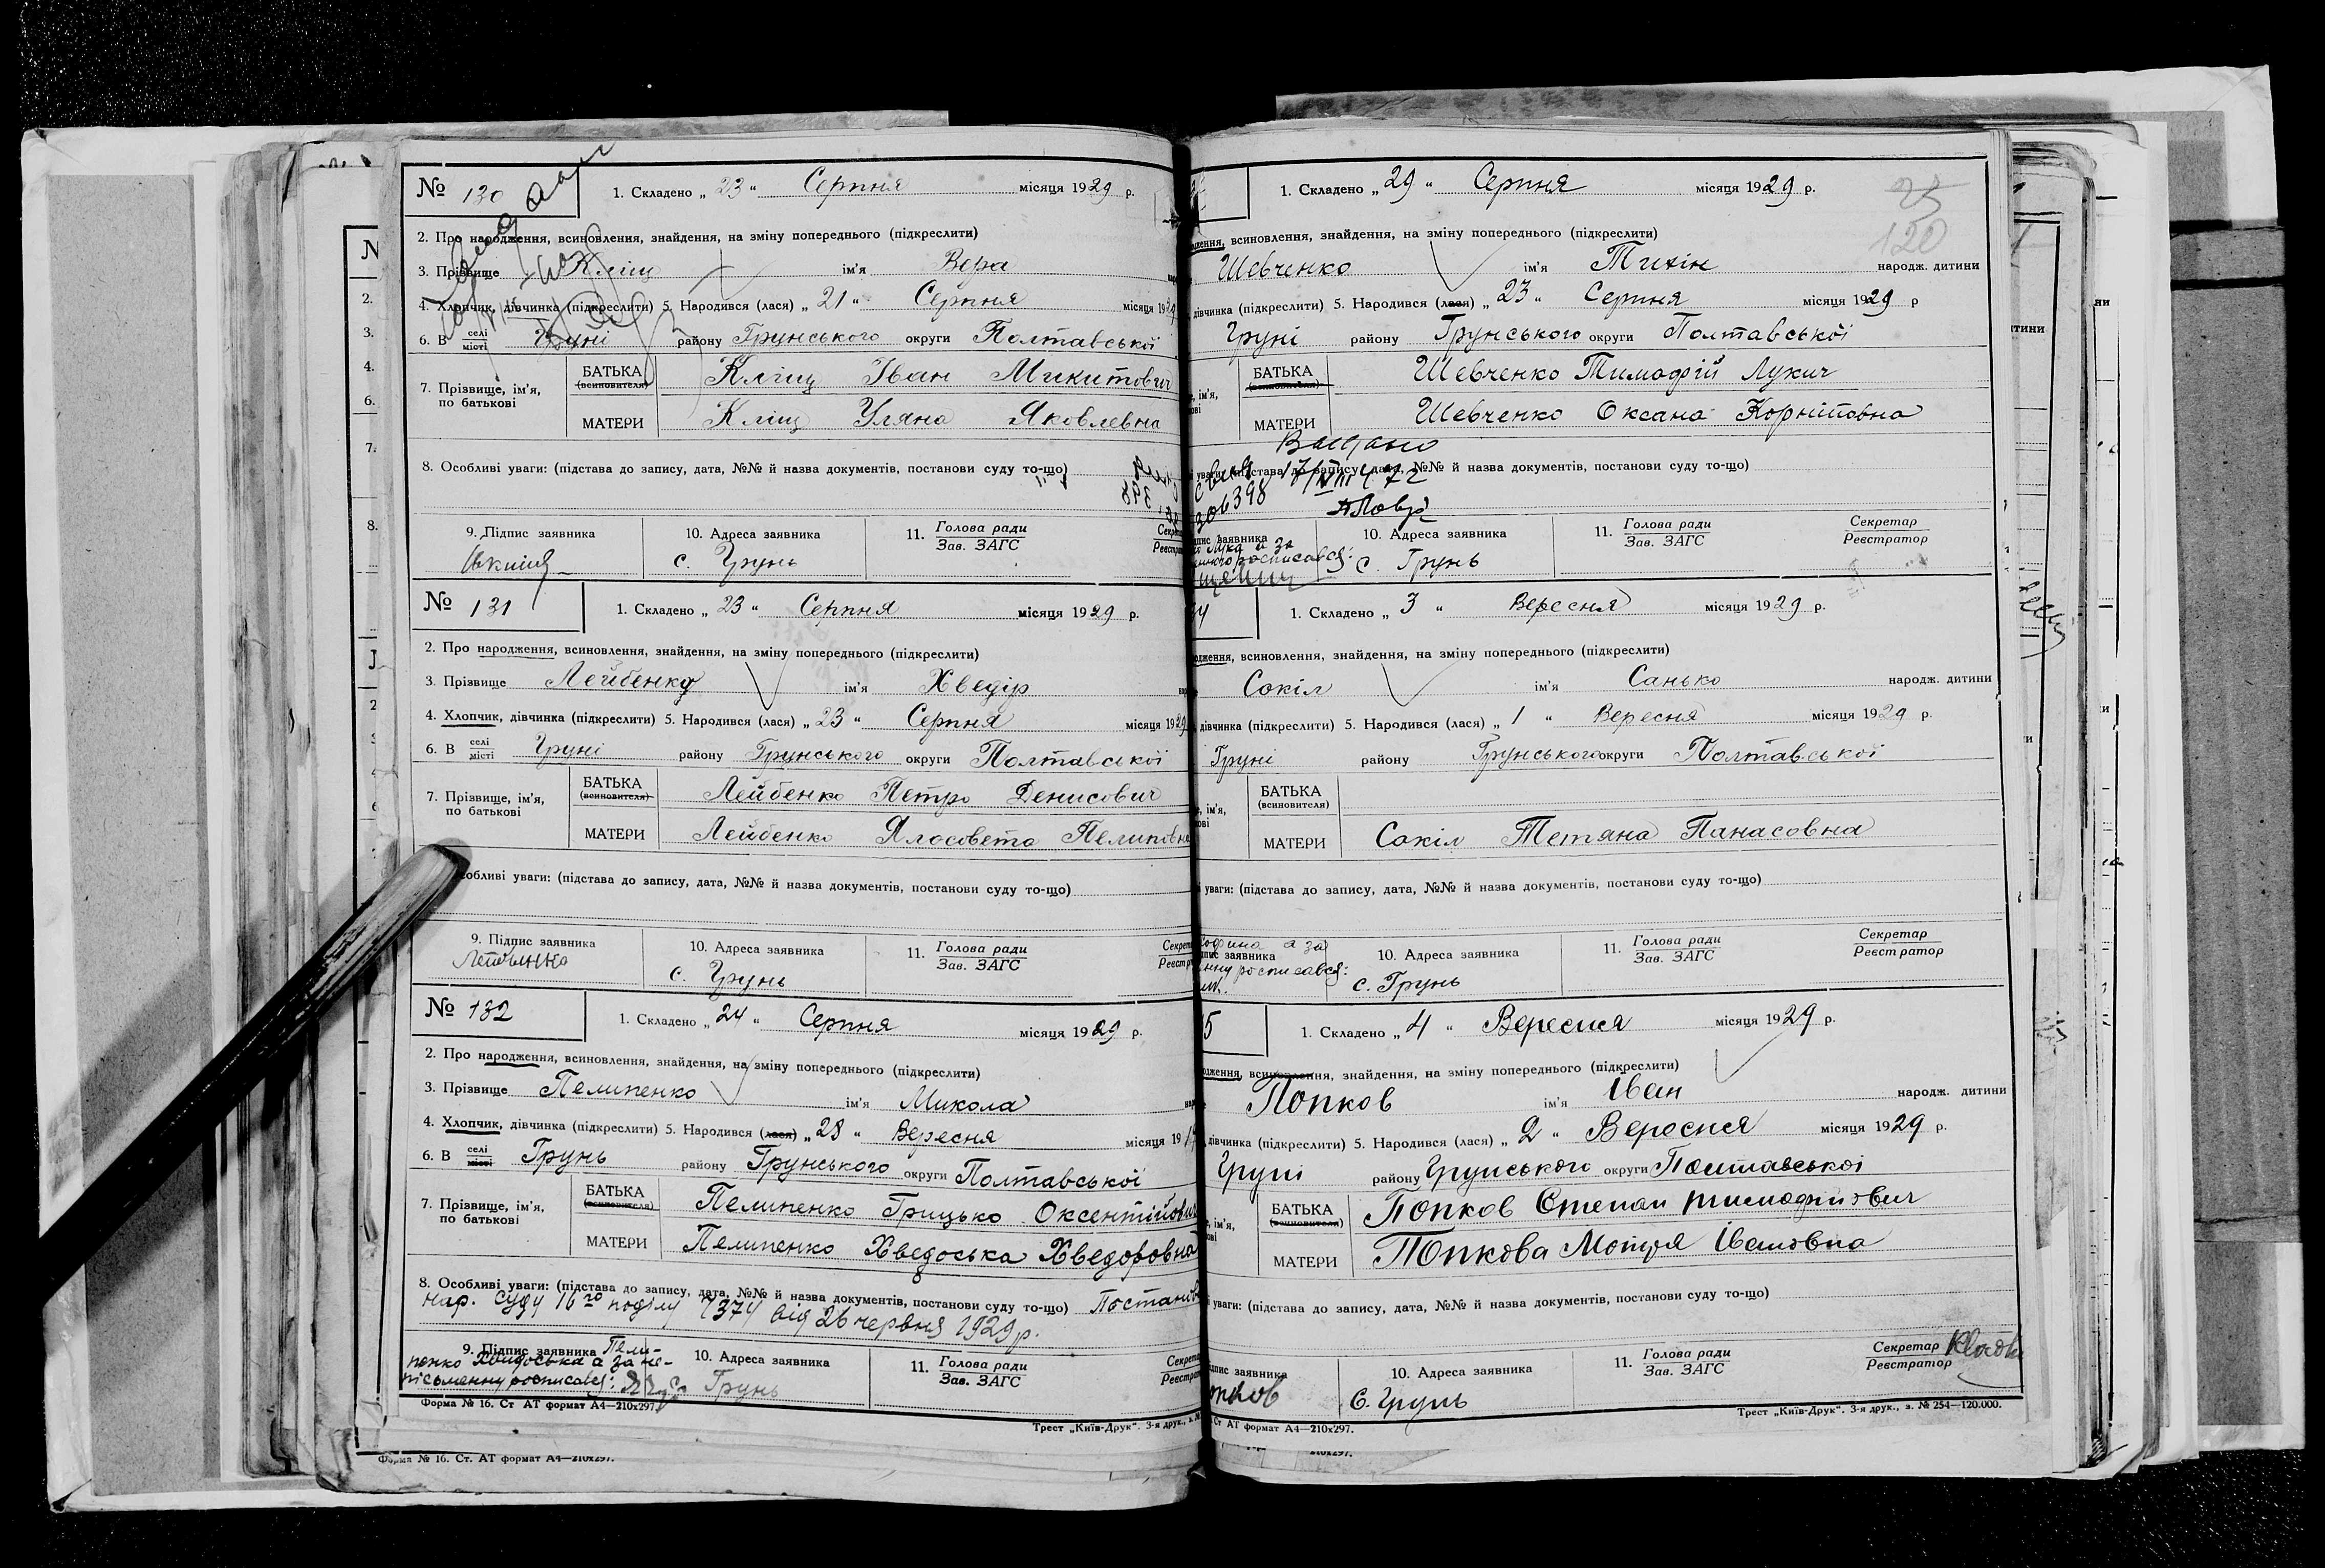 № 130 1. Складено „ 23 “ Серпня місяця 1929 р.
2. Про народження, всиновлення, знайдення, на зміну попереднього (підкреслити)
3. Прізвище Кліщ ім'я Вера
4. Хлопчик, дівчинка (підкреслити) 5. Народився (лася) „ 21 “ Серпня місяця 192
6. В селі місті Груні району Грунського округи Полтавської
7. Прізвище, ім'я, по батькові БАТЬКА (всиновителя) Кліщ Іван Микитович
МАТЕРИ Кліщ Уляна Яковлевна
8. Особливі уваги: (підстава до запису, дата, №№ й назва документів, постанови суду то-що)
9. Підпис заявника 10. Адреса заявника 11. Голова ради Зав. ЗАГС
с. Грунь
№ 131 1. Складено „ 23 “ Серпня місяця 1929 р.
2. Про народження, всиновлення, знайдення, на зміну попереднього (підкреслити)
3. Прізвище Лейбенко ім'я Хведір
4. Хлопчик, дівчинка (підкреслити) 5. Народився (лася) „ 23 “ Серпня місяця 1929
6. В селі місті Груні району Грунського округи Полтавської
7. Прізвище, ім'я, по батькові БАТЬКА (всиновителя) Лейбенко Петро Денисович
МАТЕРИ Лейбенко Ялосовета Пелиповна
собливі уваги: (підстава до запису, дата, №№ й назва документів, постанови суду то-що)
9. Підпис заявника 10. Адреса заявника 11. Голова ради Зав. ЗАГС
с. Грунь
№ 132 1. Складено „ 24 “ Серпня місяця 1929 р.
2. Про народження, всиновлення, знайдення, на зміну попереднього (підкреслити)
3. Прізвище Пелипенко ім'я Микола
4. Хлопчик, дівчинка (підкреслити) 5. Народився (лася) „ 28 “ Вересня місяця 19
6. В селі місті Грунь району Грунського округи Полтавської
7. Прізвище, ім'я, по батькові БАТЬКА (всиновителя) Пелипенко Грицько Оксентійович
МАТЕРИ Пелипенко Хведоська Хведоровна
8. Особливі уваги: (підстава до запису, дата, №№ й назва документів, постанови суду то-що) Постанов
нар. суду 16го поділу 7374 від 26 червня 1929 р.
9. Підпис заявника Пели- 10. Адреса заявника 11. Голова ради Зав. ЗАГС
пенко Хведоська а за не-
письменну росписавсь: с. Грунь
Форма № 16. Ст АТ формат А4—210х297.
Трест „Київ-Друк“. 3-я друк., з. №
Форма № 16. Ст. АТ формат А4—210х297.
1. Складено „ 29 “ Серпня місяця 1929 р.
25
120
дження, всиновлення, знайдення, на зміну попереднього (підкреслити)
Шевченко ім'я Тихін народж. дитини
дівчинка (підкреслити) 5. Народився (лася) „ 23 “ Серпня місяця 1929 р
Груні району Грунського округи Полтавської
БАТЬКА (всиновителя) Шевченко Тимофій Лукич
МАТЕРИ Шевченко Оксана Корнітовна
Выдано
уваги: (підстава до запису, дата, №№ й назва документів, постанови суду то-що)
306398
підпис заявника 10. Адреса заявника 11. Голова ради Зав. ЗАГС Секретар Реєстратор
с. Грунь
1. Складено „ 3 “ Вересня місяця 1929 р.
дження, всиновлення, знайдення, на зміну попереднього (підкреслити)
Сокіл ім'я Санько народж. дитини
дівчинка (підкреслити) 5. Народився (лася) „ 1 “ Вересня місяця 1929 р.
Груні району Грунського округи Полтавської
БАТЬКА (всиновителя)
МАТЕРИ Сокіл Тетяна Панасовна
уваги: (підстава до запису, дата, №№ й назва документів, постанови суду то-що)
підпис заявника 10. Адреса заявника 11. Голова ради Зав. ЗАГС Секретар Реєстратор
с. Грунь
5 1. Складено „ 4 “ Вересня місяця 1929 р.
дження, всиновлення, знайдення, на зміну попереднього (підкреслити)
Попков ім'я Іван народж. дитини
дівчинка (підкреслити) 5. Народився (лася) „ 2 “ Вересня місяця 1929 р.
Груні району Грунського округи Полтавської
БАТЬКА (всиновителя) Попков Степан Тимофійович
МАТЕРИ Попкова Мотря Івановна
уваги: (підстава до запису, дата, №№ й назва документів, постанови суду то-що)
підпис заявника 10. Адреса заявника 11. Голова ради Зав. ЗАГС Секретар Реєстратор
с. Грунь
Ст АТ формат А4—210х297.
Трест „Київ-Друк“. 3-я друк., з. № 254—120.000.